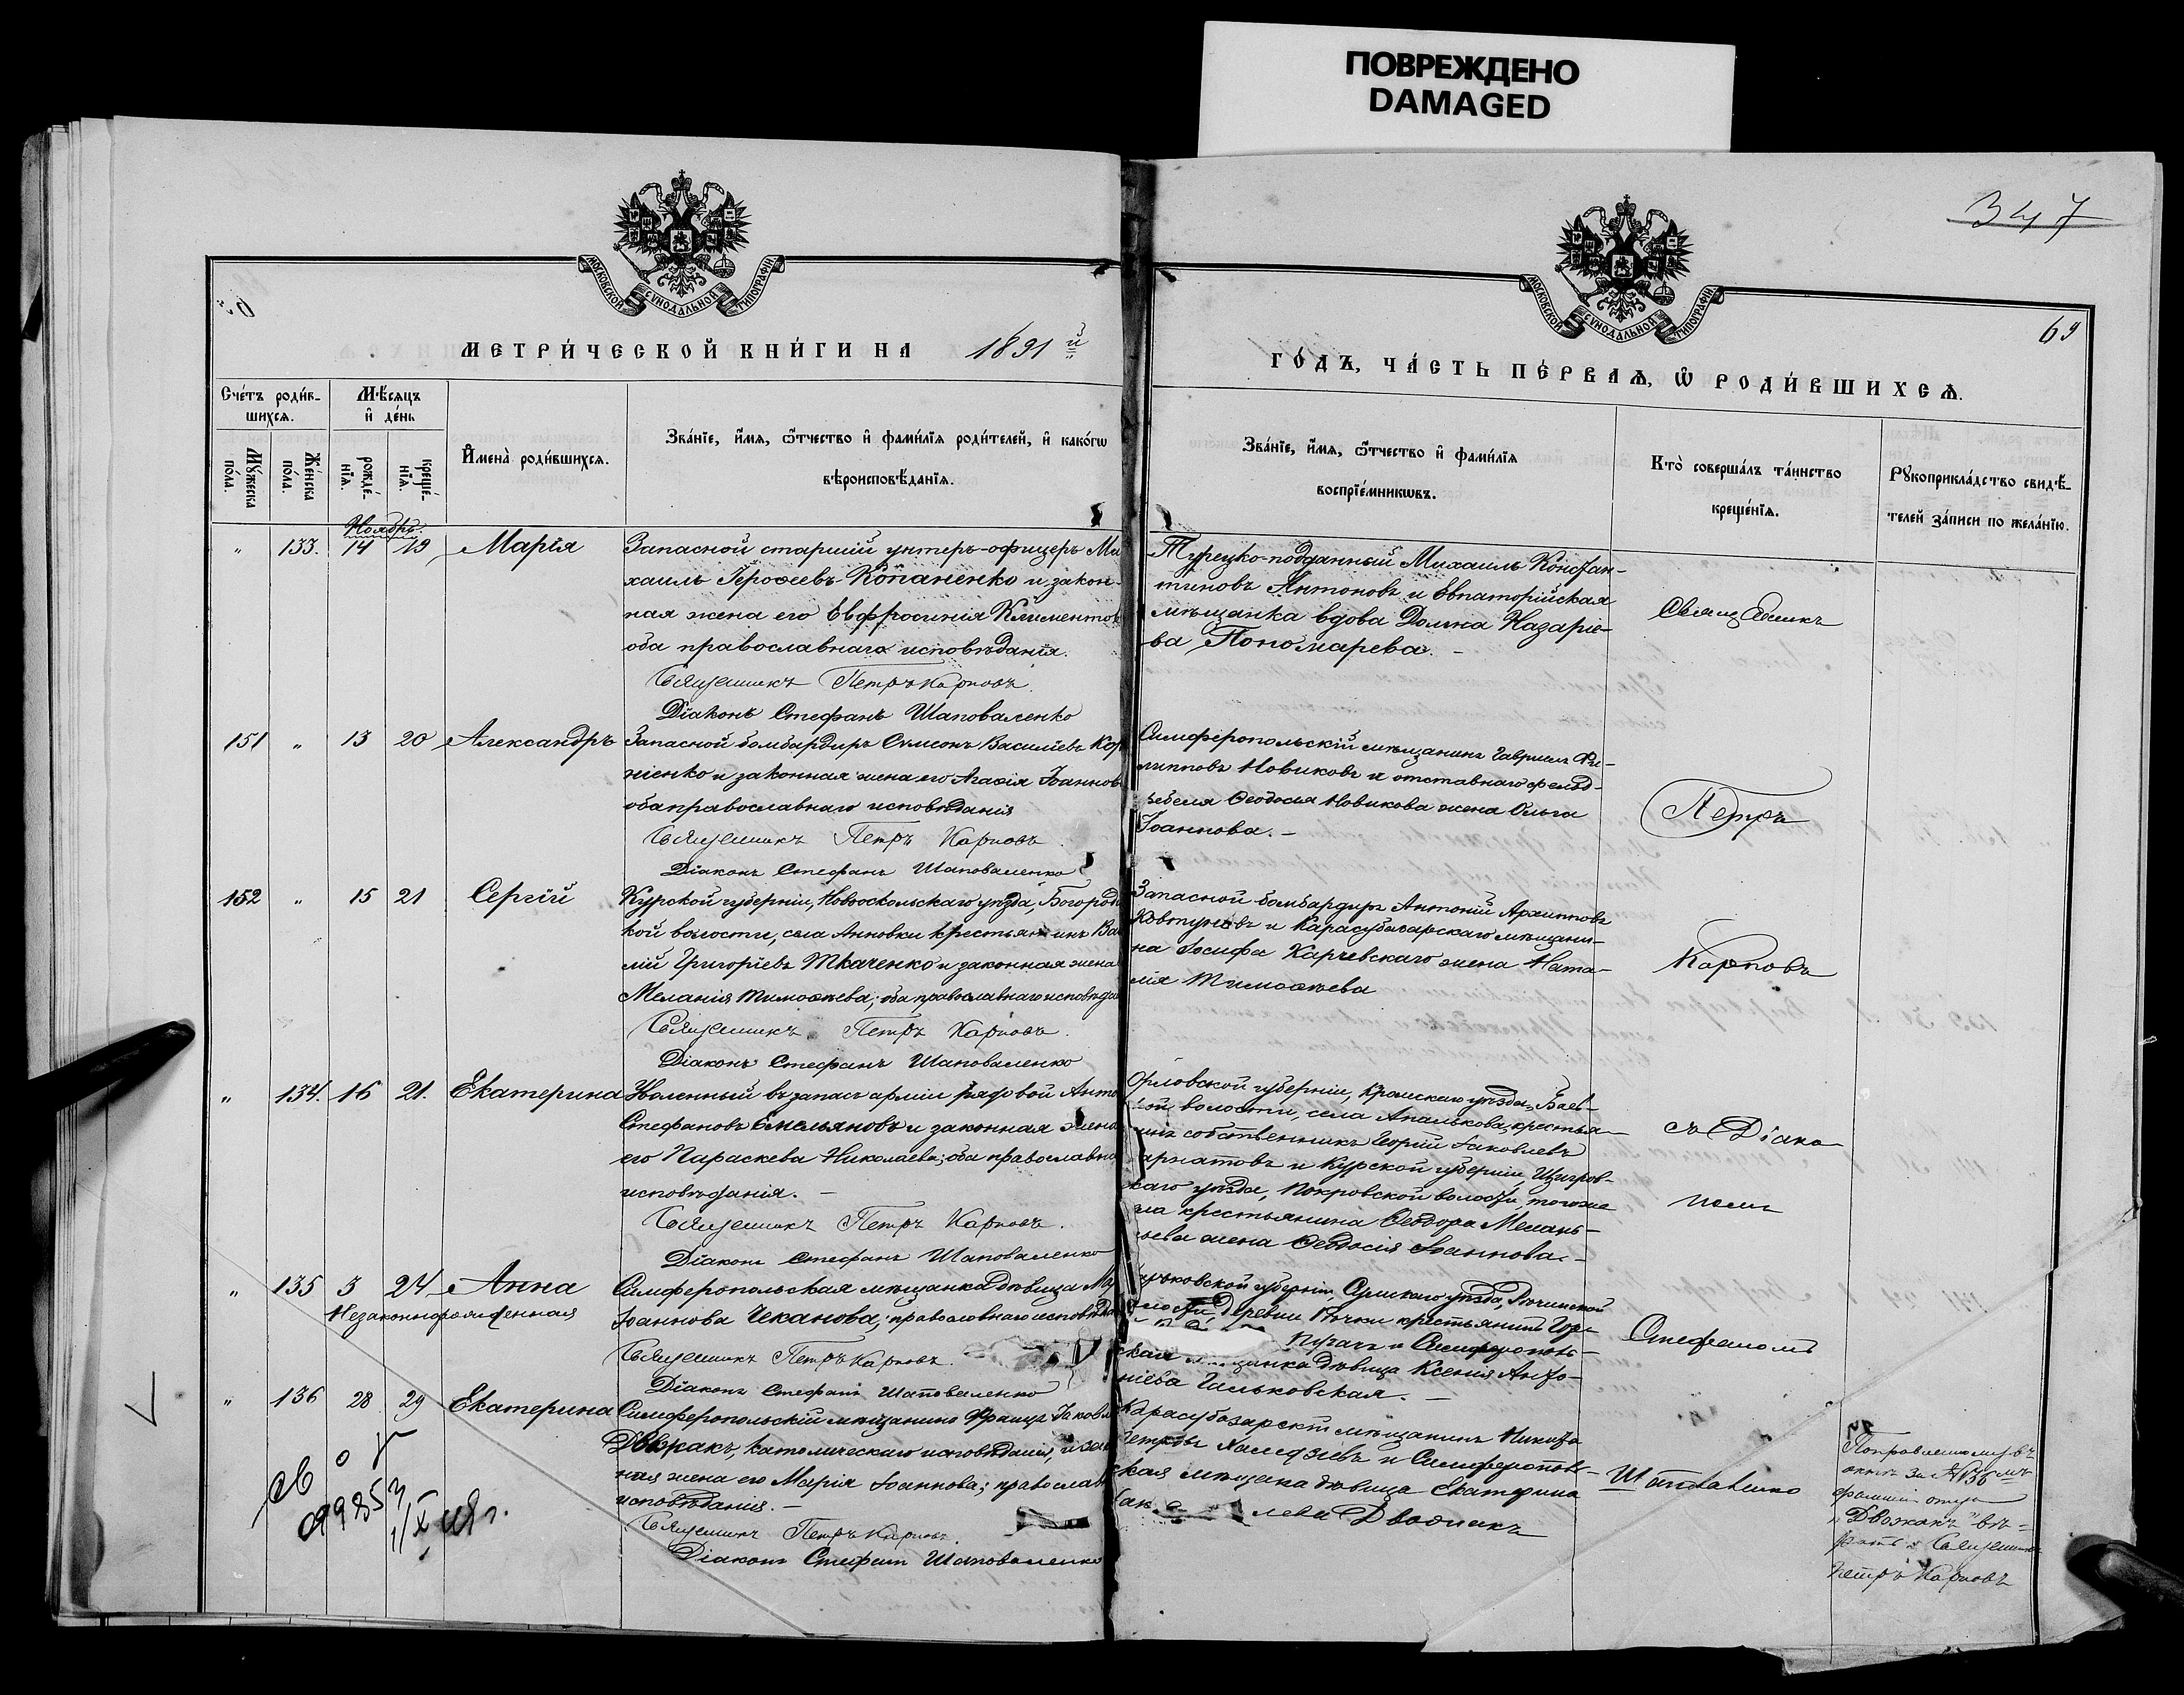 ПОВРЕЖДЕНО
DAMAGED
347
МОСКОВСКОЙ СѴНОДАЛЬНОЙ ТИПОГРАФІИ
МОСКОВСКОЙ СѴНОДАЛЬНОЙ ТИПОГРАФІИ
69
МЕТРИ́ЧЕСКОЙ КНИ́ГИ НА 1891 й
ГО́ДЪ, ЧА́СТЬ ПЕ́РВАѦ, Ѡ҆ РОДИ́ВШИХСѦ.
Сче́тъ роди́в-
шихсѧ.
Мꙋ́жеска по́ла.
Же́нска по́ла.
Мѣ́сѧцъ
и҆ де́нь
рожде́-
нїѧ.
креще́-
нїѧ.
И҆мена̀ роди́вшихсѧ.
Зва́нїе, и҆́мѧ, ѻ҆́тчество и҆ фами́лїѧ роди́телей, и҆ како́гѡ
вѣроисповѣ́данїѧ.
Зва́нїе, и҆́мѧ, ѻ҆́тчество и҆ фами́лїѧ
воспрїе́мникѡвъ.
Кто̀ соверша́лъ та́инство
креще́нїѧ.
Рꙋкоприкла́дство свидѣ́-
телей за́писи по жела́нїю.
Ноябрь.
" 133. 14 19 Марія
Запасной старшій унтеръ-офицеръ Ми
хаилъ Іерофеевъ Копаненко и закон-
ная жена его Евфросинія Климентов
оба православнаго исповѣданія.
Священникъ Петръ Карповъ.
Діаконъ Стефанъ Шаповаленко
Турецко-подданный Михаилъ Констан-
тиновъ Антоновъ и Евпаторійская
мѣщанка вдова Домна Назаріе-
ва Пономарева. -
Священникъ
151 " 13 20 Александръ
Запасной бомбардиръ Симеонъ Василіевъ Кор
ніенко и законная жена его Агафія Іоаннов
оба православнаго исповѣданія
Священникъ Петръ Карповъ
Діаконъ Стефанъ Шаповаленко
Симферопольскій мѣщанинъ Гавріилъ Фи-
липповъ Новиковъ и отставнаго фельд-
фебеля Ѳеодосія Новикова жена Ольга
Іоаннова. -
Петръ
152 " 15 21 Сергій
Курской губерніи, Новооскольскаго уѣзда, Богород
кой волости, села Анновки крестьянинъ Ва
лій Григоріевъ Ткаченко и законная жена
Меланія Тимоѳеева; оба православнаго исповѣда
Священникъ Петръ Карповъ.
Діаконъ Стефанъ Шаповаленко
Запасной бомбардиръ Антоній Архипповъ
Ковтуновъ и Карасубазарскаго мѣщани-
на Іосифа Карчевскаго жена Ната-
лія Тимоѳеева
Карповъ
" 134. 16 21. Екатерина
Уволенный въ запасъ арміи рядовой Анто
Стефановъ Емельяновъ и законная жена
его Параскева Николаева; оба православна
исповѣданія. -
Священникъ Петръ Карповъ.
Діаконъ Стефанъ Шаповаленко
Орловской губерніи, Кромскаго уѣзда, Баев-
кой волости, села Апалькова, крестья-
нинъ собственникъ Георгій Іаковлевъ
и Курской губерніи, Щигров-
скаго уѣзда, Покровской волости, того же
ла крестьянина Ѳеодора Мелань-
ева жена Ѳеодосія Іоаннова. -
съ Діако-
номъ
" 135 3 24 Анна
Незаконнорожденная
Симферопольская мѣщанка дѣвица Ма
Іоаннова Чеканова, православнаго исповѣда
Священникъ Петръ Карповъ.
Діаконъ Стефанъ Шаповаленко
Харьковской губерніи, Сумскаго уѣзда,
волости, деревни крестьянинъ
и Симферополь-
ская мѣщанка дѣвица Ксенія Анто-
ніева Гильковская. -
Стефаномъ
" 136 28 29 Екатерина
Симферопольскій мѣщанинъ Францъ Іаковл
Двожакъ, католическаго исповѣданія, и зак
ная жена его Марія Іоаннова; православ
исповѣданія. -
Священникъ Петръ Карповъ
Діаконъ Стефанъ Шаповаленко
Карасубазарскій мѣщанинъ Никита
Петровъ и Симферополь-
ская мѣщанка дѣвица Екатерина
лева Двожакъ
Шаповаленко
Поправленному въ
актѣ за № 136 мъ
фамилія отца
"Двожакъ" вѣ-
рить. Священникъ
Петръ Карповъ